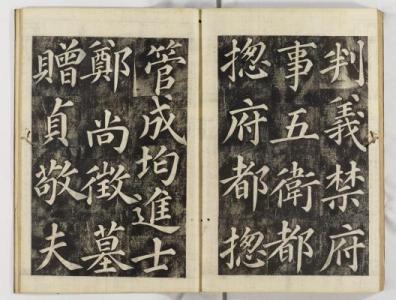 判義禁府
事五衛都
摠府都摠
管成均進士
鄭尚徵墓
贈貞敬夫